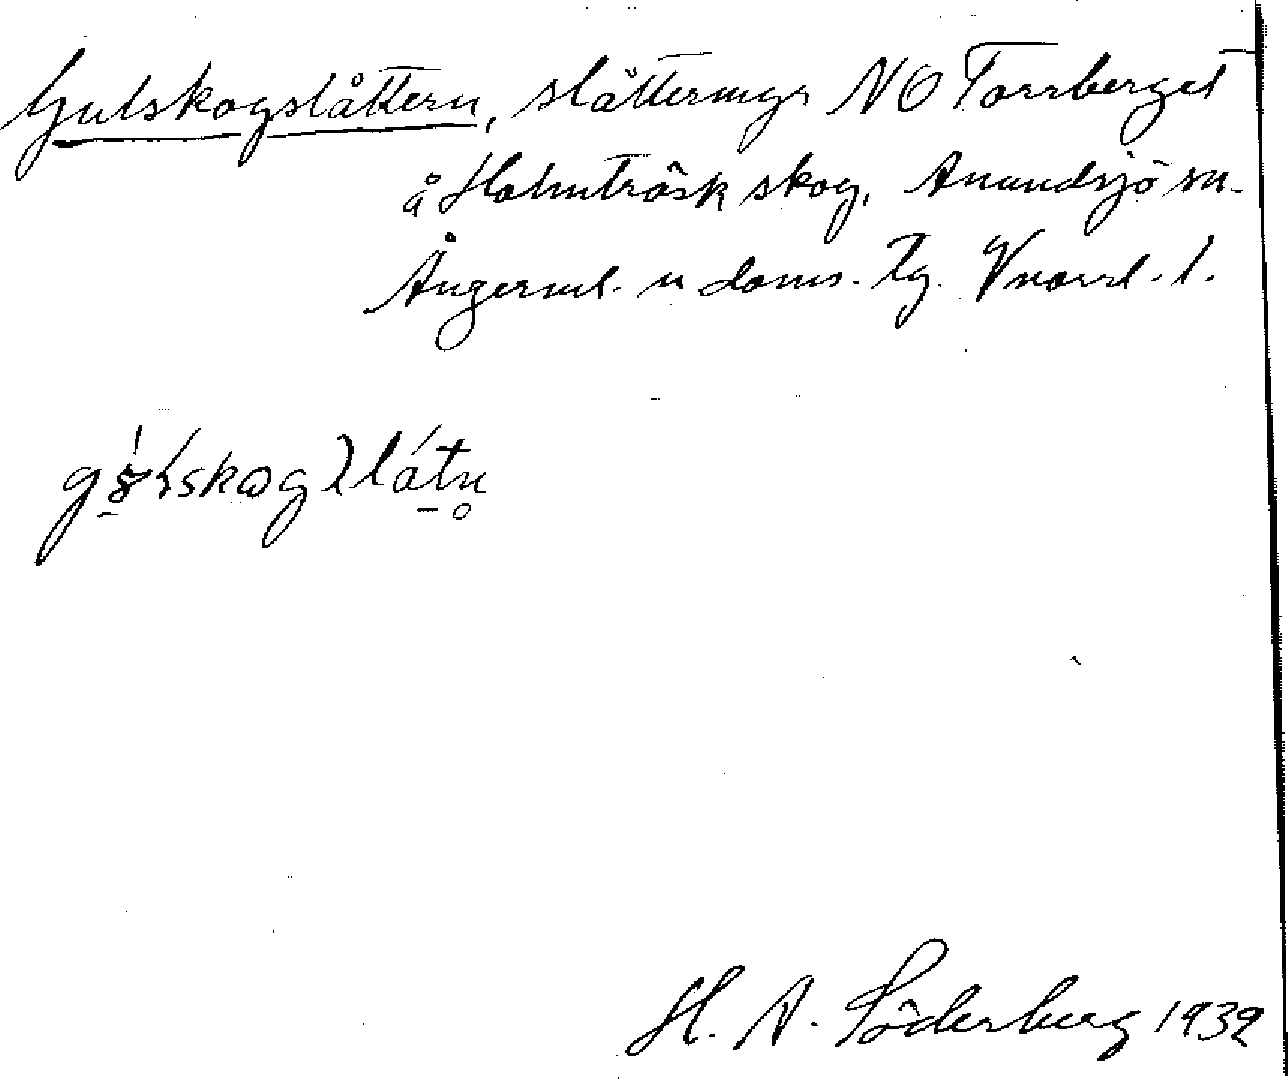 Gulskogslåttern, slätterängar NO Torrberget
å Holmträsk skog, Anundsjö sn.
Ångerml. n doms. tg. Vnorrl. l.
H. A. Söderberg 1932